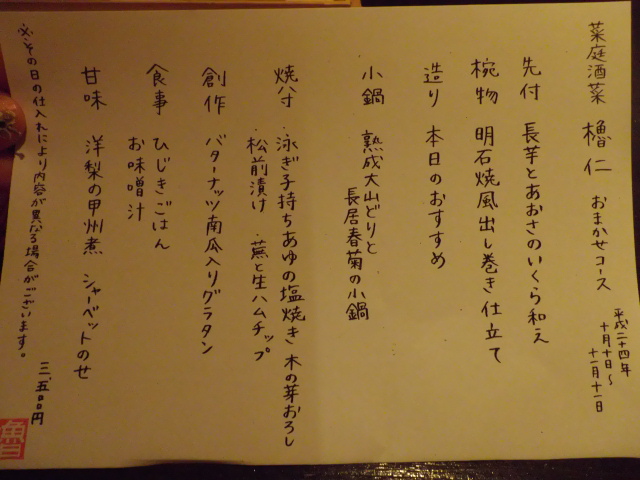 菜庭酒菜 櫓仁 おまかせコース
平成二十四年
十月十日～
十一月十一日
先付 長芋とあおさのいくら和え
椀物 明石焼風出し巻き仕立て
造り 本日のおすすめ
小鍋 熟成大山どりと
長居春菊の小鍋
焼八寸 ・泳ぎ子持ちあゆの塩焼き 木の芽おろし
・松前漬け ・蕪と生ハムチップ
創作 バターナッツ南瓜入りグラタン
食事 ひじきごはん
お味噌汁
甘味 洋梨の甲州煮 シャーベットのせ
三、五〇〇円
※その日の仕入れにより内容が異なる場合がございます。